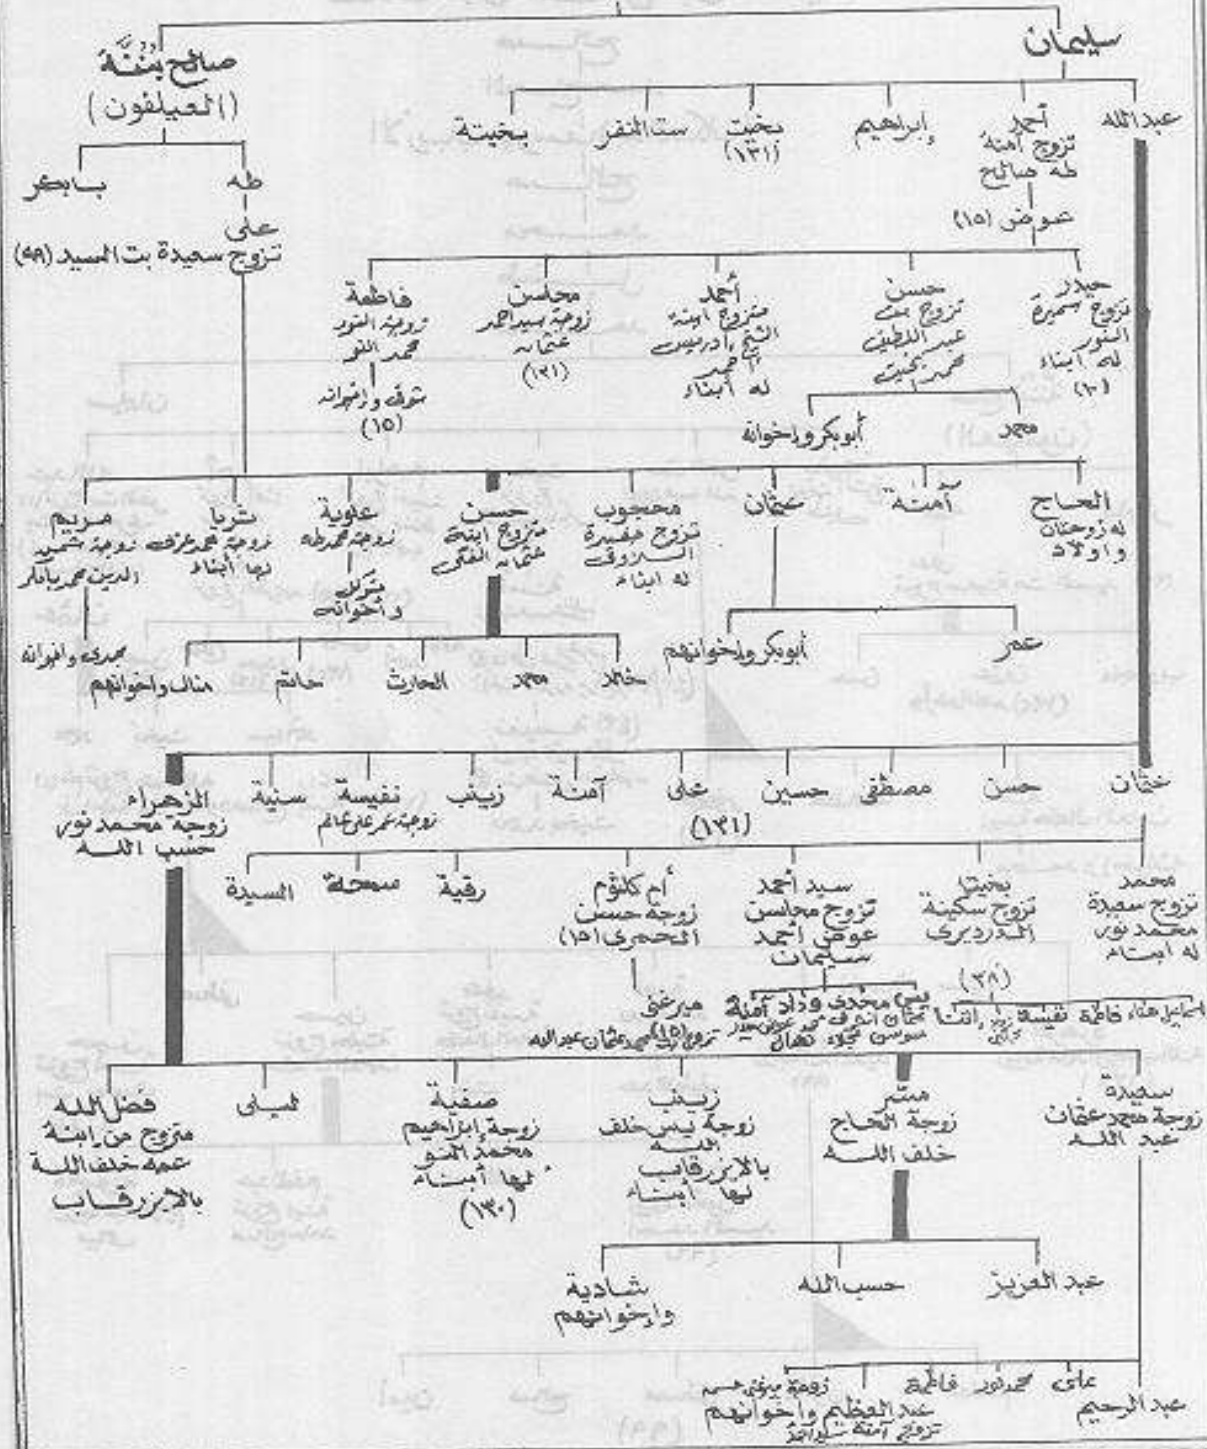 سليمان
صالح بُنُنَّة
(العيلفون)
عبدالله
أحمد
تزوج آمنة
طه صالح
إبراهيم
بخيت
(١٣١)
ست النفر
بخيتة
عوض (١٥)
طه
بابكر
على
تزوج سعيدة بت السيد (٩٨)
حيدر
تزوج سميرة
النور
له أبناء
حسن
تزوج بت
عبد اللطيف
محمد بخيت
أحمد
متزوج ابنة
الشيخ إدريس
أحمد
له أبناء
محاسن
زوجة سيد احمد
عثمان
(١٣١)
فاطمة
زوجة النور
محمد النو
شوقى وإخوانه
(١٥)
محمد
أبوبكر وإخوانه
الحاج
له زوجتان
وأولاد
آمنة
عثمان
محجوب
تزوج
له أبناء
حسن
متزوج ابنة
عثمان الفكى
علوية
زوجة محمد طه
متوكل
وأخوانه
ثريا
زوجة محمد عوض
لها أبناء
مريم
زوجة شمس
الدين محمد بابكر
مجدى وإخوانه
عمر
أبوبكر وإخوانهم
خالد
محمد
الحارث
حاتم
منال وإخوانهم
عثمان
حسن
مصطفى
حسين
على
(١٣١)
آمنة
زينب
نفيسة
زوجة عمر على غانم
سنية
الزهراء
زوجة محمد نور
حسب الله
محمد
تزوج سعيدة
محمد نور
له أبناء
بخيت
تزوج سكينة
الدرديرى
(٣٨)
سيد أحمد
تزوج محاسن
عوض أحمد
سليمان
أم كلثوم
زوجة حسن
الحمرى (١٥)
رقية
سمحة
السيدة
إسماعيل هناء فاطمة نفيسة
يس مجدى وداد آمنة
ميرغنى
سعيدة
زوجة محمد عثمان
عبد الله
منتر
زوجة الحاج
خلف الله
زينب
زوجة يس خلف
الله
بالايزرقاب
لها أبناء
صفية
زوجة إبراهيم
محمد النو
لها أبناء
(١٣٠)
ليلى
فضل الله
متزوج من ابنة
عمه خلف الله
بالايزرقاب
عبد العزيز
حسب الله
شادية
وإخوانهم
عبد الرحيم
على
محمد نور
فاطمة
زوجة ميرغنى حسن
عبد العظيم وإخوانهم
تزوج آمنة سيد أحمد